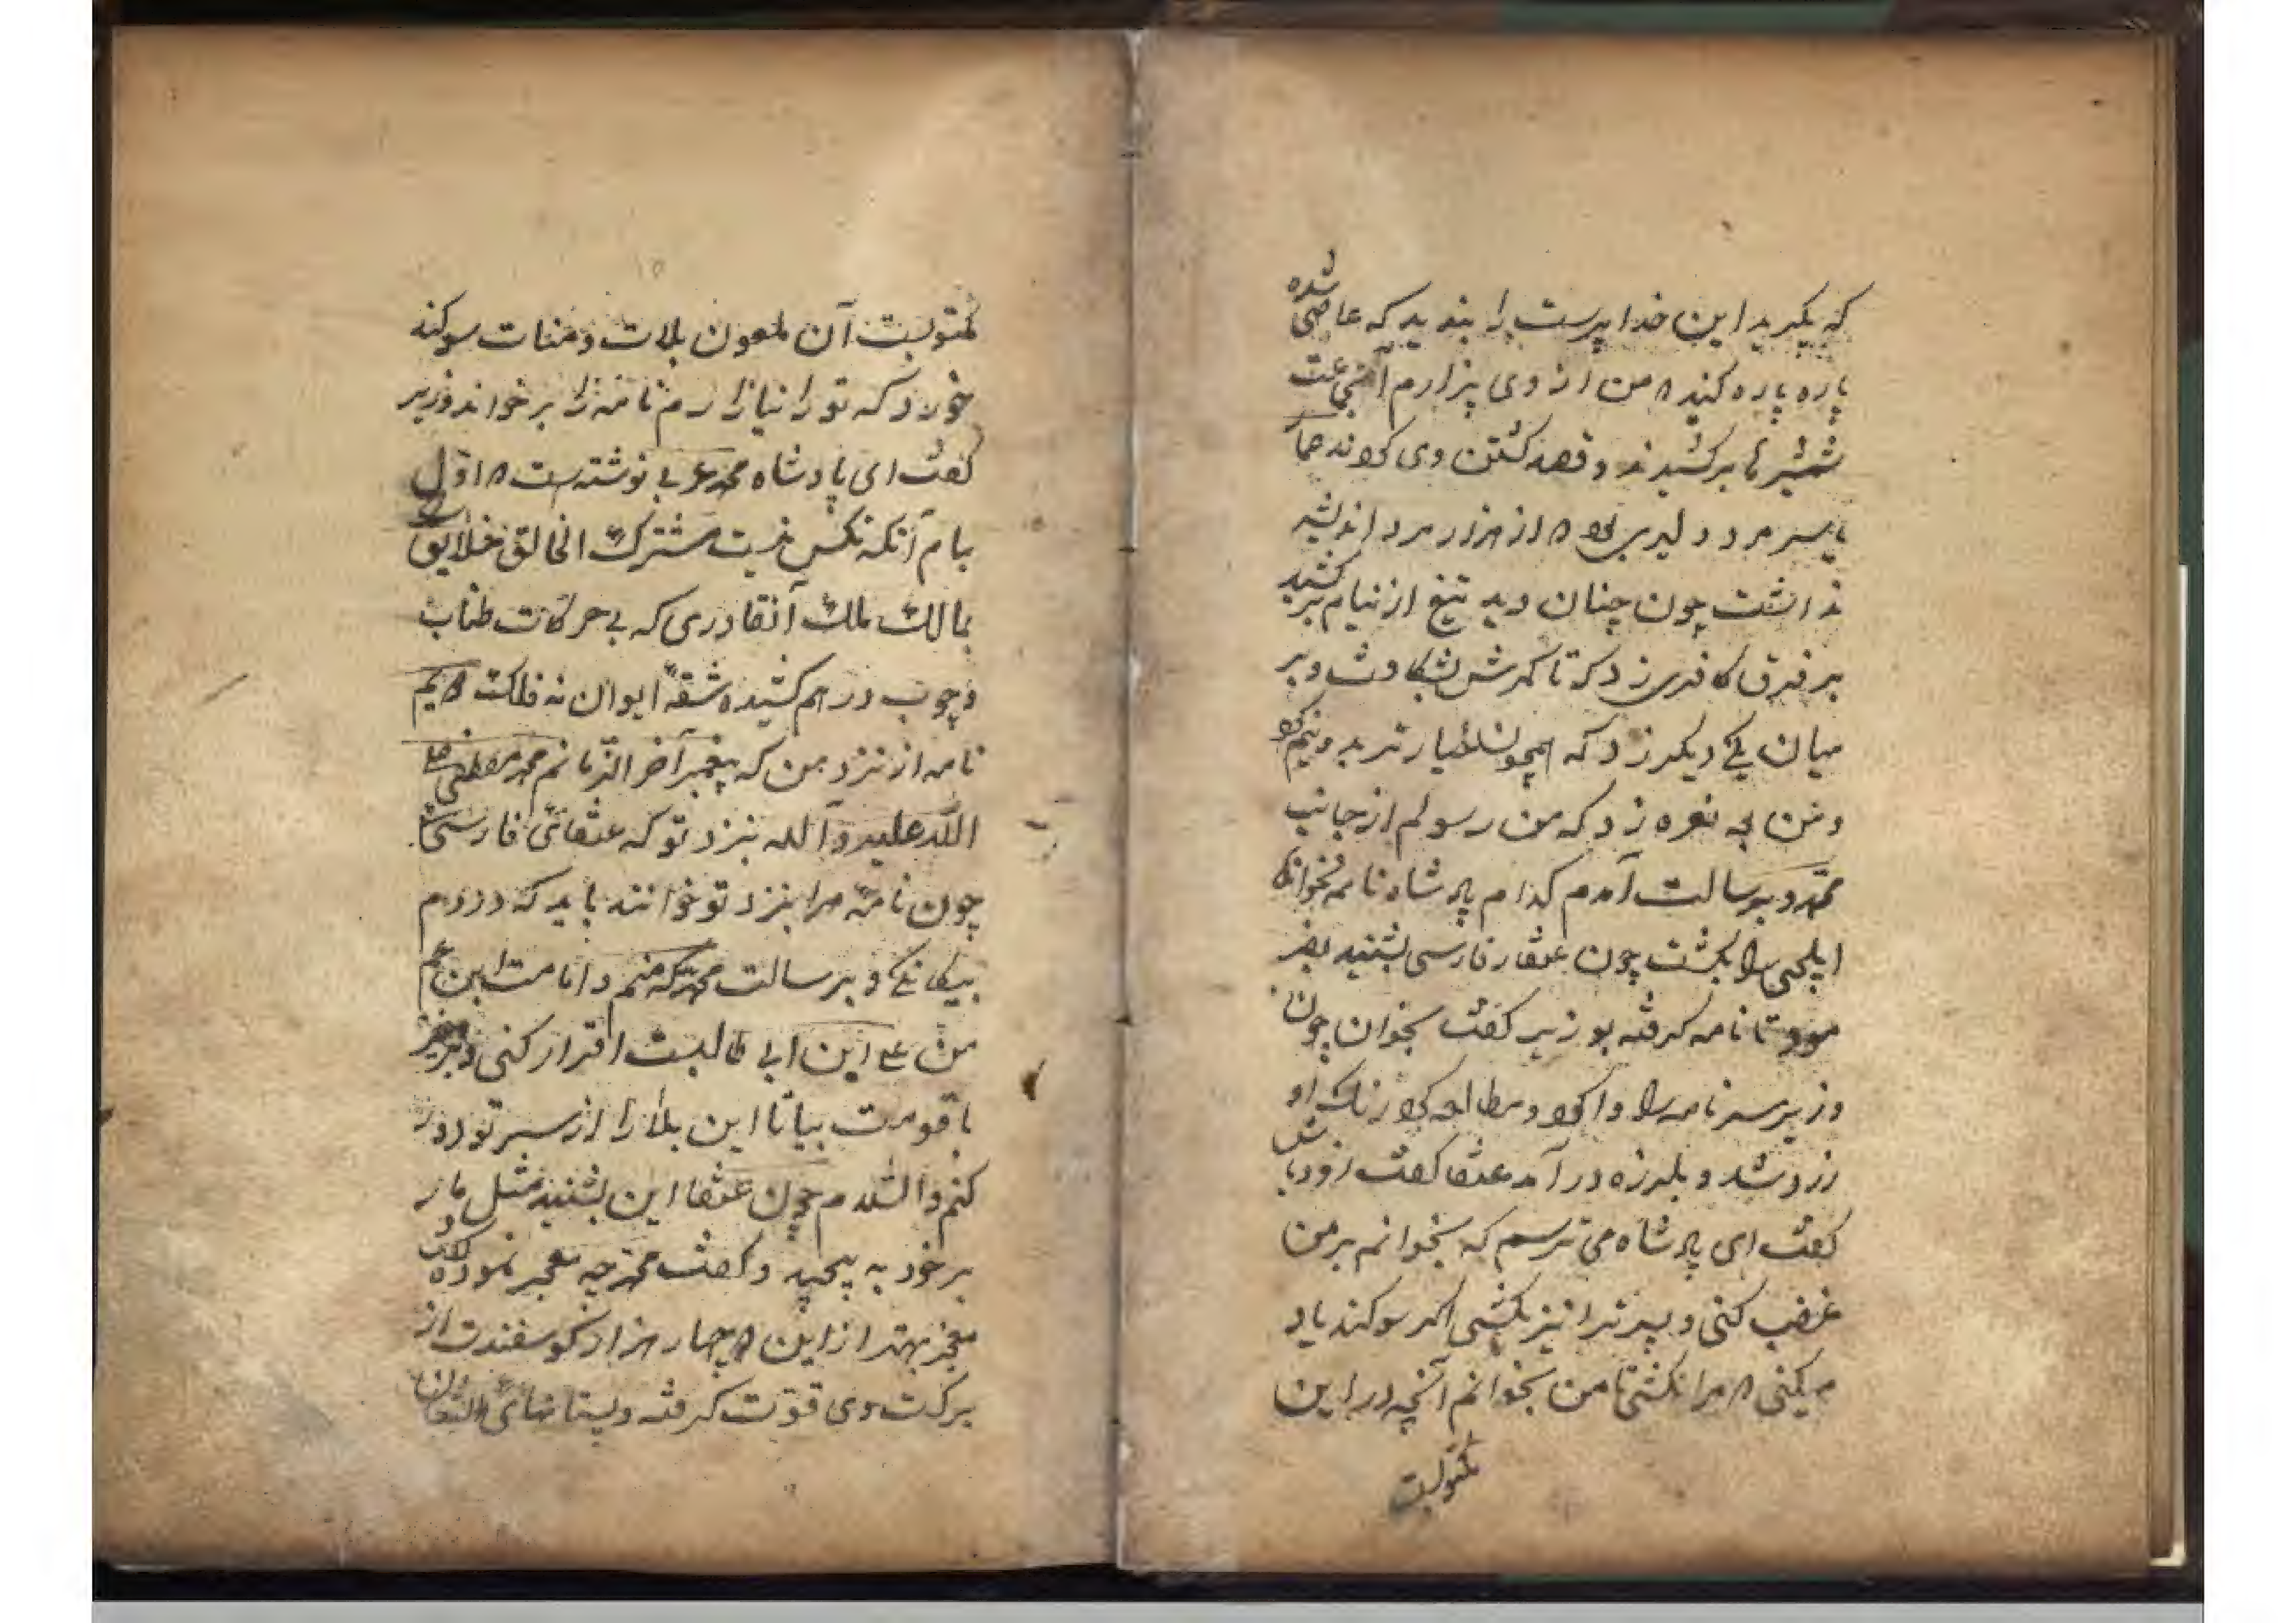 که بگیرید این خدا پرست را بندید که عاصی شده
پاره پاره کنید من از وی بیزارم آنجماعت
شمشیرها برکشیدند و قصد کشتن وی کردند
پسر مرد دلیری بود از هزار مرد اندیشه
نداشت چون چنان دید تیغ از نیام بر کشید
بر فرق کافری زد که تا کمرش بشکافت و بر
میان یکی دیگر زد که همچون خیار تر بدو نیم کرد
نعره زد که من رسولم از جانب
محمد و برسالت آمدم کدام پادشاه نامه نخوانده
ایلچی را بکشت چون عنقا فارسی بشنید
تا نامه گرفته بوزیر گفت بخوان چون
وزیر سر نامه را وا کرد و مطالعه کرد رنک او
زرد شد و بلرزه در آمد عنقا گفت زود باش
گفت ای پادشاه می ترسم که بخوانم بر من
غضب کنی و پسرترا نیز بکشی اگر سوکند یاد
میکنی مرا نکشی تا من بخوانم آنچه در این
مکتوبست
مکتوبست آن ملعون بلات و منات سوکند
خورد که تو را نیازارم نامه را بر خواند وزیر
گفت ای پادشاه محمد عربی نوشته است اول
بنام آنکه نیست مشترک الخالق خلایق
مالک ملک آنقادری که بی حرکات طناب
و چوب در هم کشیده شقه ایوان نه فلک
نامه از نزد من که پیغمبر آخر الزمانم محمد مصطفی صلی
الله علیه و آله بنزد تو که عنقای فارسی
چون نامه مرا بنزد تو خوانند باید که در دم
بیکانکی و برسالت محمد که منم و امامت ابن عم
من علی ابن ابی طالبست اقرار کنی و برخیز
با قومت بیا تا این بلا را از سر تو دور
کنم والسلام چون عنقا این بشنید مثل مار
بر خود به پیچید و گفت محمد چه معجز نموده
معجز بهتر از این چهار هزار کوسفندت از
برکت وی قوت کرفته و پستانهای